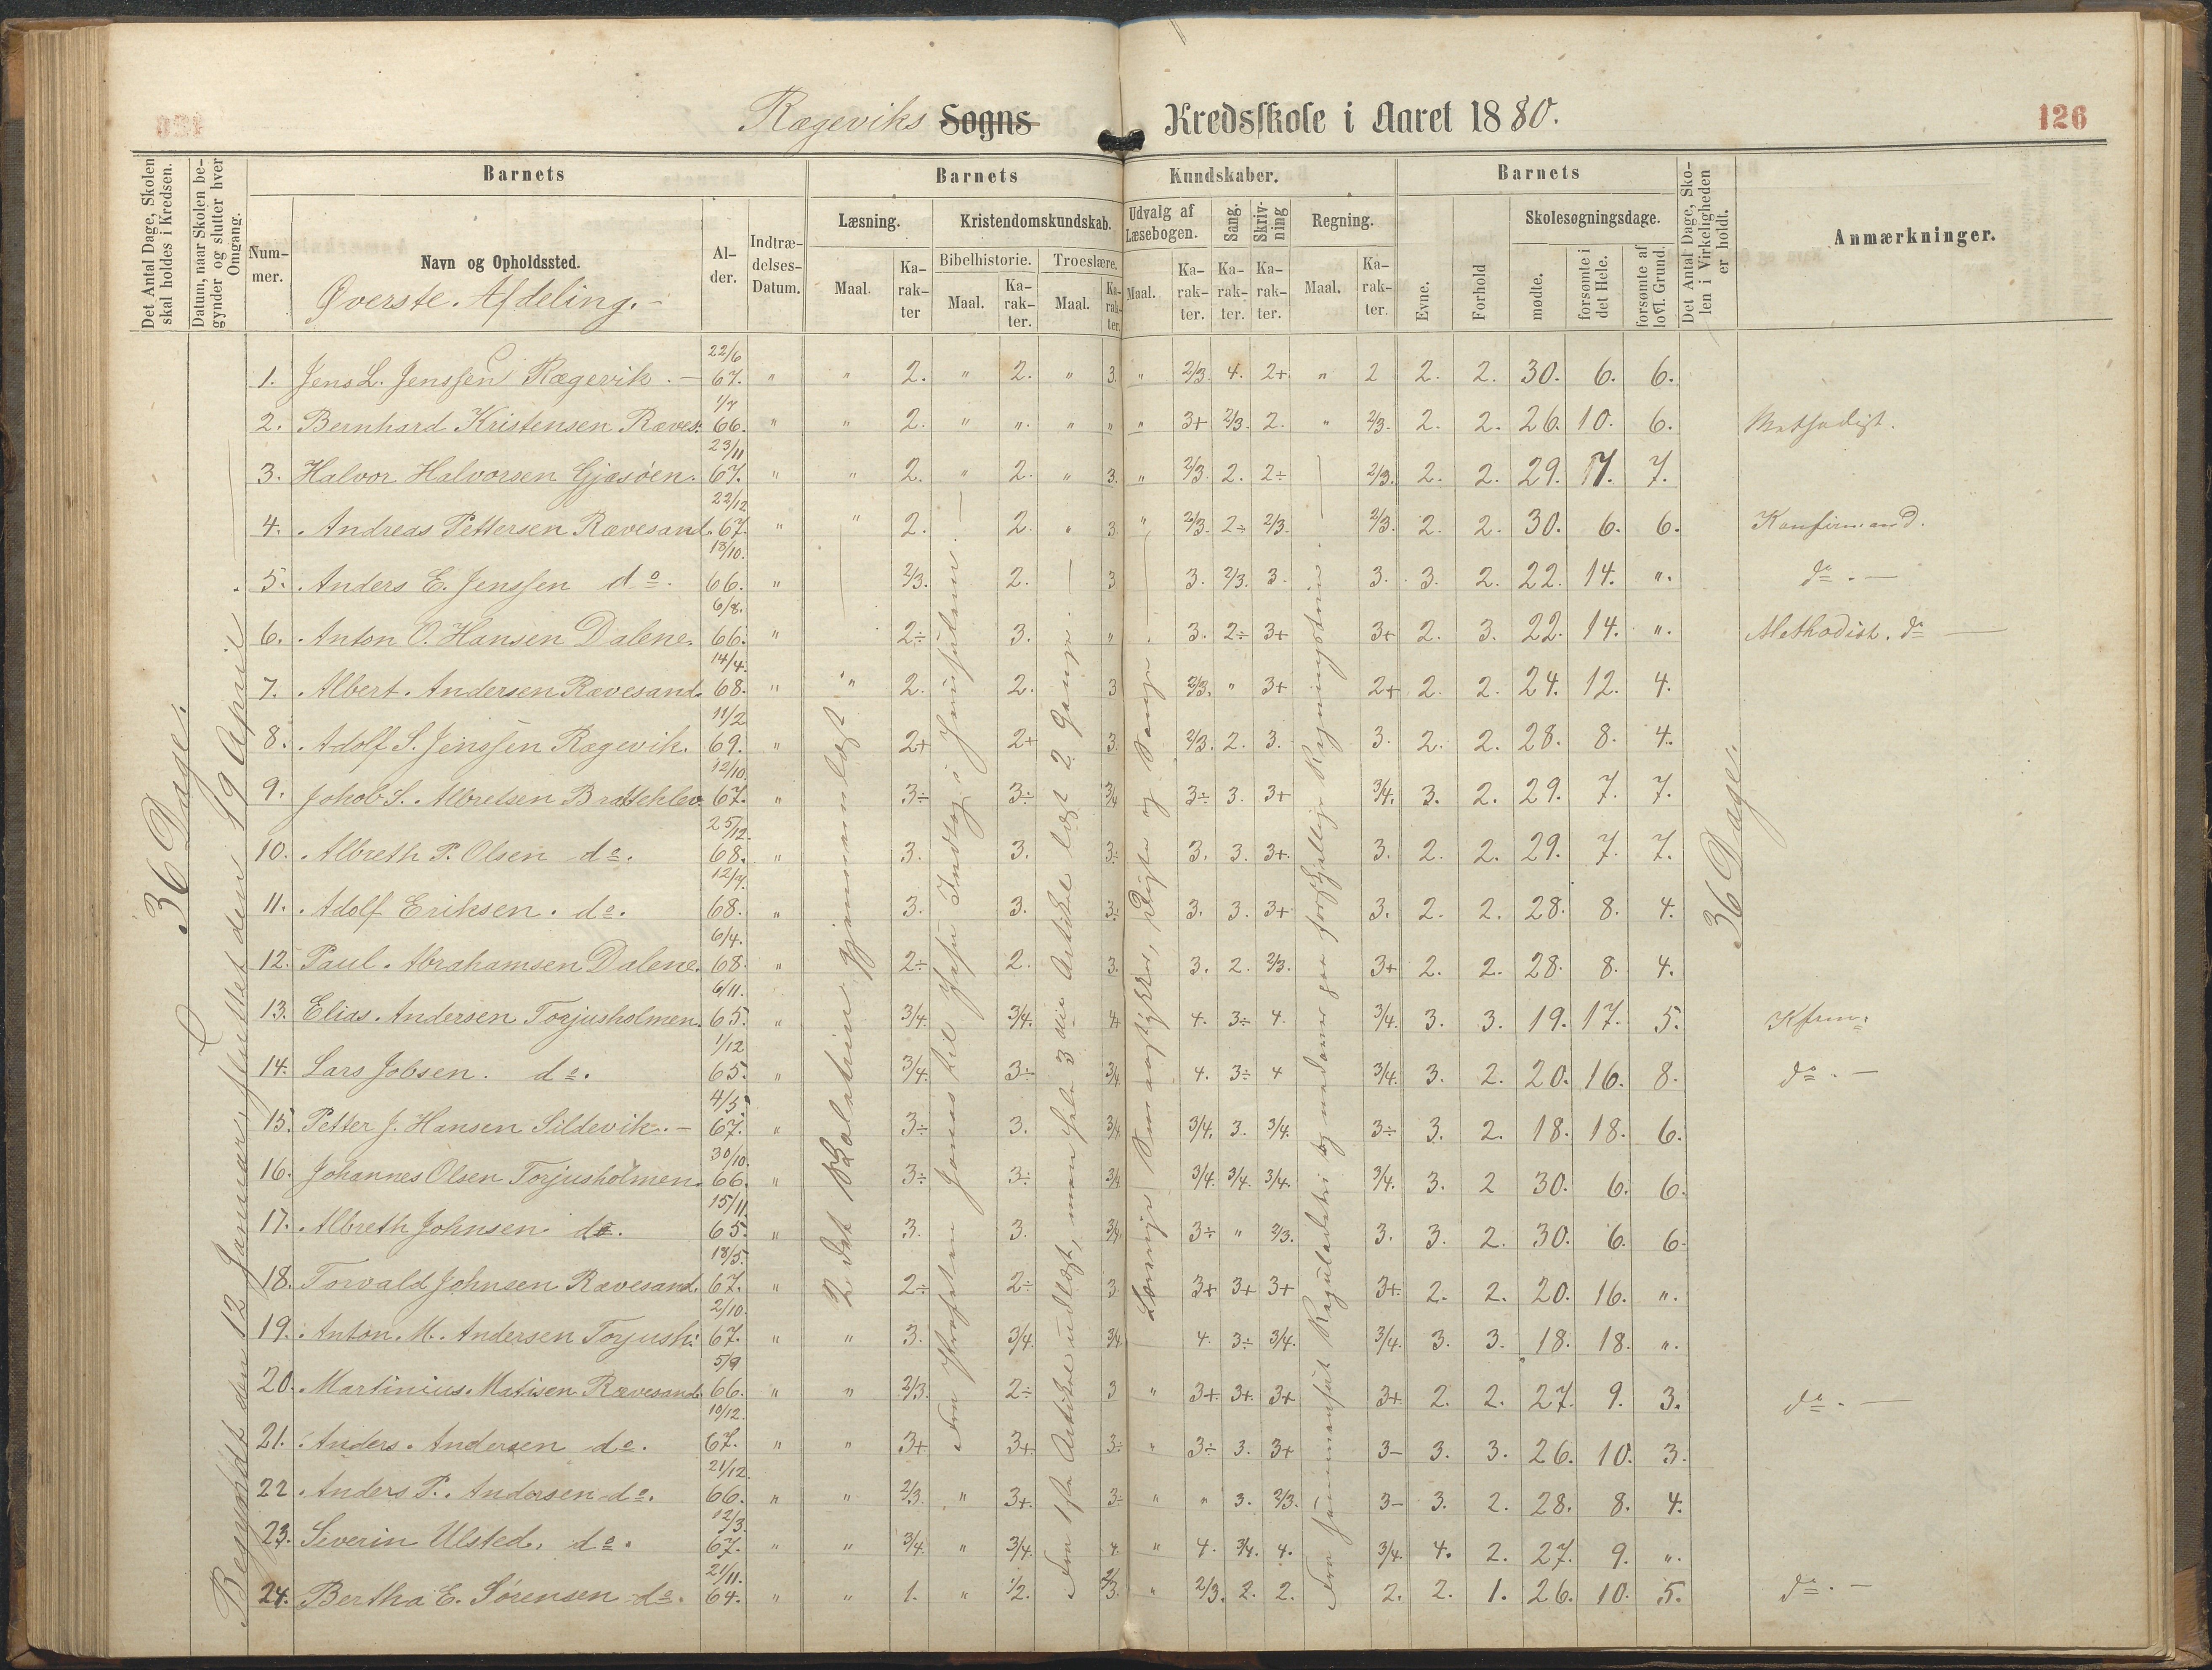 Rægeviks Sogns Kredsskole i Aaret 1880.
126
Det Antal Dage, Skolen skal holdes i Kredsen.
Datum, naar Skolen begynder og slutter hver Omgang.
Barnets
Barnets
Kundskaber.
Barnets
Det Antal Dage, Skolen i Virkeligheden er holdt.
Anmærkninger.
Nummer.
Navn og Opholdssted.
Øverste Afdeling. -
Alder.
Indtrædelses-Datum.
Læsning.
Kristendomskundskab.
Udvalg af Læsebogen.
Sang.
Skrivning
Regning.
Evne.
Forhold
Skolesøgningsdage.
Bibelhistorie.
Troeslære.
Maal.
Karakter
Maal.
Karakter.
Maal.
Karakter.
Maal.
Karakter.
Karakter.
Karakter.
Maal.
Karakter.
mødte.
forsømte i det Hele.
forsømte af lovl. Grund.
36 Dage.
Begyndt den 12 Januar, sluttet den 19 April
1. Jens L. Jenssen Rægevik. - 22/6 67. " " 2. " 2. " 3. " 2/3. 4. 2+. " 2 2. 2. 30. 6. 6.
2. Bernhard Kristensen Ræves. 1/7 66. " " 2. " " " " " 3+ 2/3. 2. " 2/3. 2. 2. 26. 10. 6. Methodist.
3. Halvor Halvorsen Gjæsøen. 23/11 67. " " 2. " 2. " 3. " 2/3. 2. 2÷ 2/3. 2. 2. 29. 7. 7.
4. Andreas Pettersen Rævesand. 22/12 67. " " 2. 2. " 3 " 2/3. 2÷ 2/3. 2/3. 2. 2. 30. 6. 6. Konfirmand.
5. Anders E. Jenssen do. 18/10. 66. " 2/3. 2. 3 3. 2/3. 3. 3. 3. 2. 22. 14. ". do. -
6. Anton O. Hansen Dalene. 6/8. 66. " 2÷ 3. " 3. 2÷ 3+ 3+ 2. 3. 22. 14. ". Methodist. do -
7. Albert Andersen Rævesand. 14/4. 68. " " 2. 2. 3 2/3. " 3+ 2+ 2. 2. 24. 12. 4.
8. Adolf S. Jenssen Rægevik. 11/2 69. " 2+ 2+ 3. 2/3. 2. 3. 3. 2. 2. 28. 8. 4.
9. Jakob S. Albretsen Bratteklev 12/10. 67. " 3÷ 3÷ 3/4 3÷ 3. 3+ 3/4. 3. 2. 29. 7. 7.
10. Albreth P. Olsen do. 25/12. 68. " 3. 3. 3÷ 3. 3. 3+. 3. 2. 2. 29. 7. 7.
11. Adolf Eriksen. do. 12/7. 68. " 3. 3. 3÷ 3. 3. 3+ 3. 2. 2. 28. 8. 4.
12. Paul Abrahamsen Dalene. 6/4. 68. " 2÷ 2. 3. 3. 2. 2/3. 3+ 2. 2. 28. 8. 4.
13. Elias Andersen Torjusholmen. 6/11. 65. " 3/4. 3/4. 4 4. 3÷ 4. 3/4. 3. 3. 19. 17. 5. Kfrm.
14. Lars Jobsen. do. 1/12 65. " 3/4. 3÷ 3/4 4. 3÷ 4 3/4. 3. 2. 20. 16. 8. do. -
15. Petter J. Hansen Sildevik. - 4/5. 67. " 3÷ 3. 3/4 3/4. 3. 3/4. 3÷ 3. 2. 18. 18. 6.
16. Johannes Olsen Torjusholmen. 30/10. 66. " 3÷ 3÷ 3/4 3/4. 3/4. 3/4. 3/4. 3. 2 30. 6. 6.
17. Albreth Johnsen do. 15/11. 65. " 3. 3. 3/4. 3÷ " 2/3. 3. 3. 2. 30. 6. 6.
18. Torvald Johnsen Rævesand. 18/5. 67. " 2÷ 2÷ 3 3+ 3+ 3+ 3+ 2. 2. 20. 16. ".
19. Anton M. Andersen Torjush: 2/10. 67. " " 3. 3/4. 3/4. 4. 3÷ 3/4. 3/4. 3. 3. 18. 18. ".
20. Martinius Matisen Rævesand. 5/9 66. " " 2/3. 2÷ 3 " 3+. 3+. 3+ 3+ 2. 2. 27. 9. 3. do. -
21. Anders Andersen do. 10/12. 67. " " 3+ 3+. 3÷ " 3÷ 3. 3+ 3- 3. 3. 26. 10. 3.
22. Anders P. Andersen do. 21/12. 66. " " 2/3. " 3+. 3÷ " " 3. 2/3. 3- 3. 2. 28. 8. 4.
23. Severin Ulsted. do. 12/3. 67. " " 3/4. " 3/4. 4. " 4. 3/4. 4. 3/4. 4. 2. 27. 9. ".
24. Bertha E. Sørensen do. 21/11. 64. " " 1. " 1/2. 2/3. " 2/3. 2. 2. 2. 2. 1. 26. 10. 5. do. -
2det gjennemlæst
Fra Profeten Jonas til Jesu Indtog i Jerusalem.
Fra 1ste Artikel udlagt, men hele 3die Artikel læst 2 Gange.
Digte og Sange
Fra Sammensat Reguladetri og nedover paa forskjellige Regningsarter.
36 Dage.